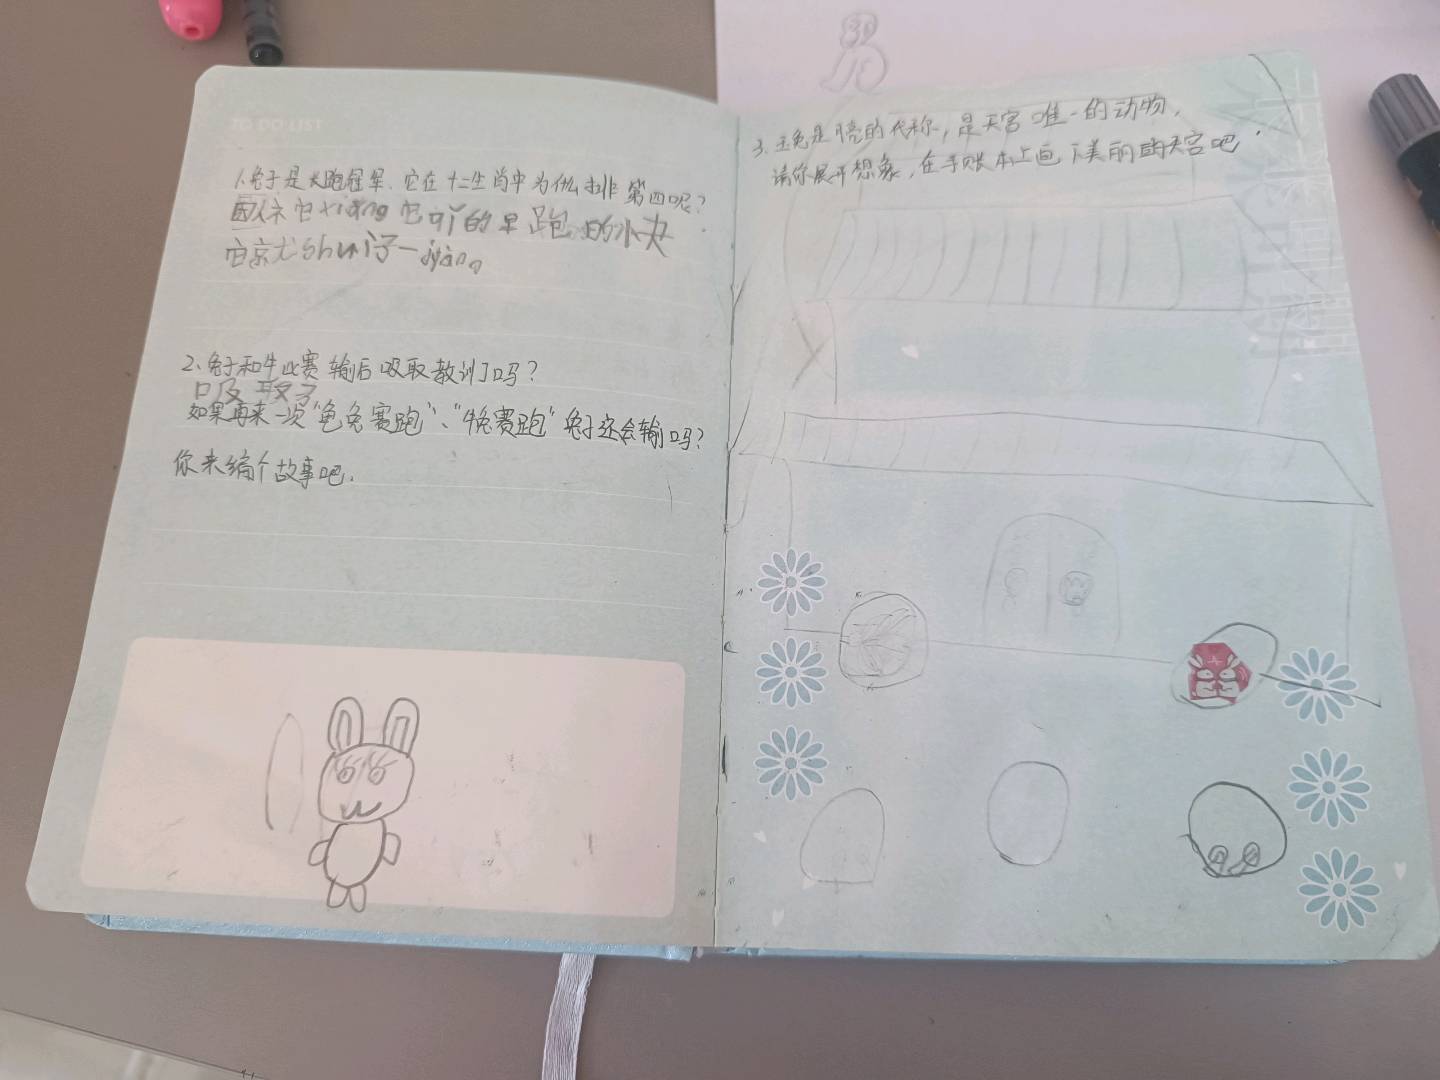 TO DO LIST
1.兔子是长跑冠军、它在十二生肖中为什么排第四呢?
因 它xiang它 的早跑的小夬
它京尤shui 子一yàng
2、兔子和牛比赛输后吸取教训了吗?
吸取了
如果再来一次“龟兔赛跑”、“牛兔赛跑”兔子还会输吗?
你来编个故事吧.
3.玉兔是月亮的代称,是天宫唯一的动物,
请你展开想象,在手账本上画下美丽的天宫吧.